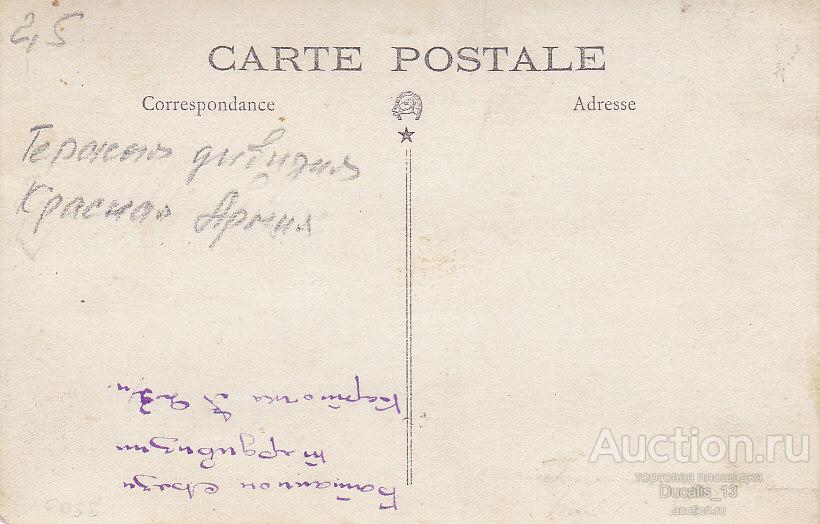 2,5
CARTE POSTALE
Correspondance
Adresse
дивизия
Красная Армия
Батальон связи
тердивизии
Карточка
Auction.ru
торговая площадка
Ducalis_13
auction.ru